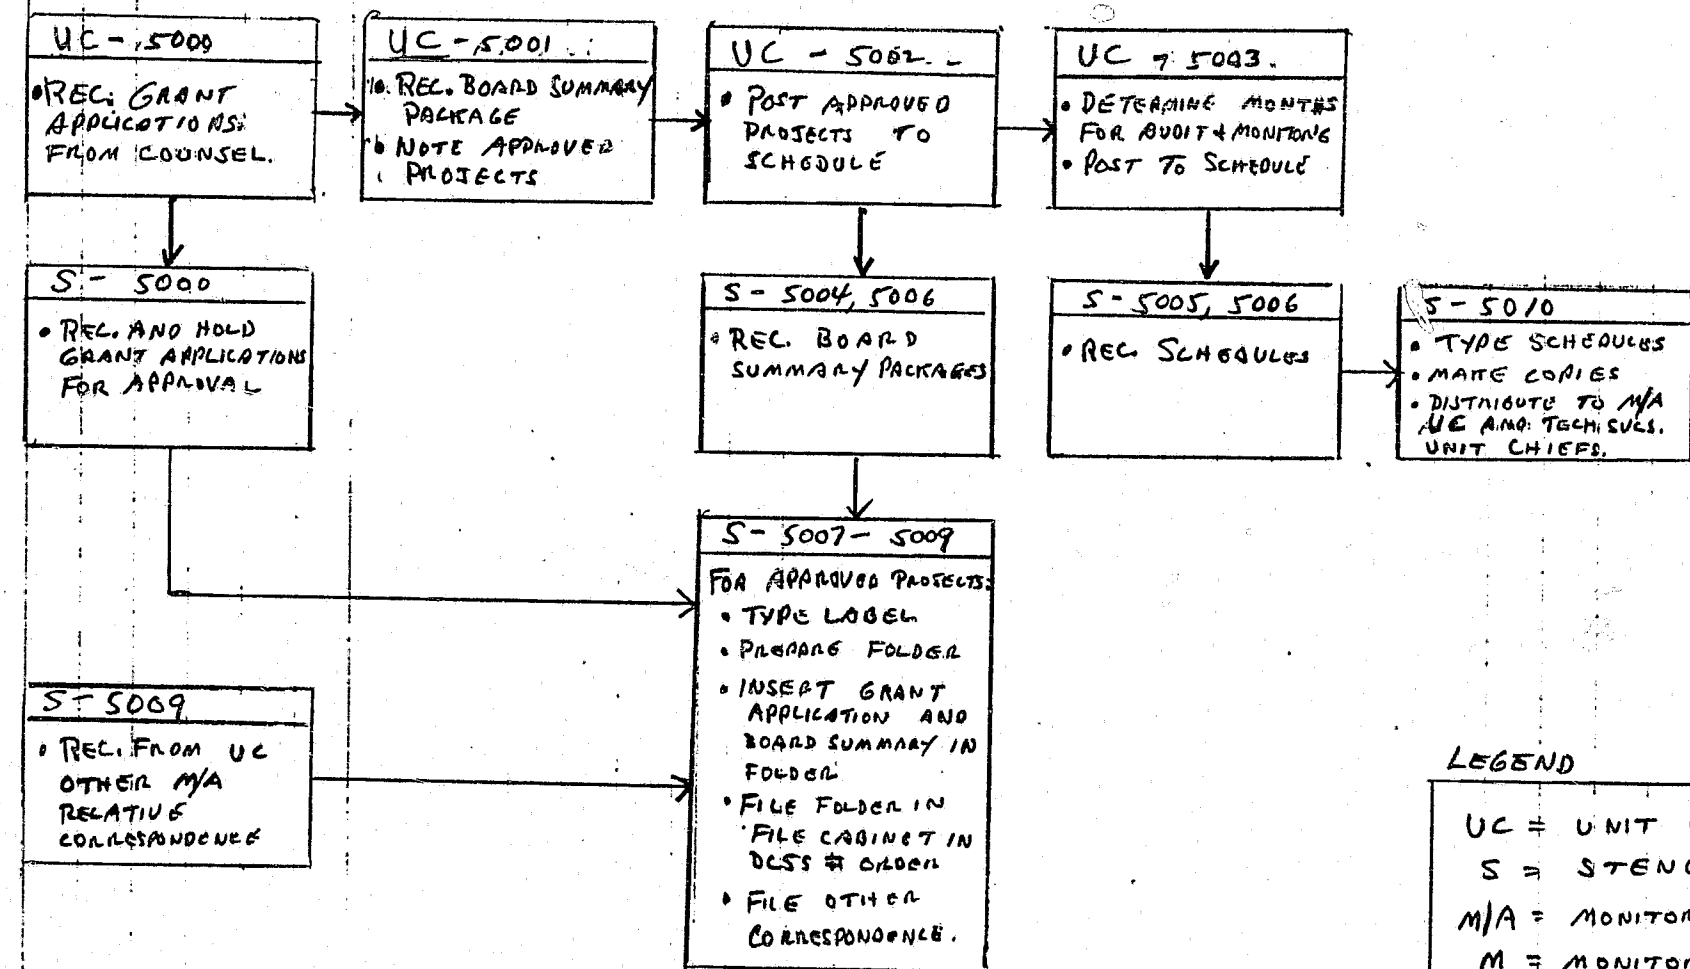 UC - 5000
• REC. GRANT
APPLICATIONS
FROM COUNSEL.
UC - 5001
• REC. BOARD SUMMARY
PACKAGE
• NOTE APPROVED
PROJECTS
UC - 5002
• POST APPROVED
PROJECTS TO
SCHEDULE
UC - 5003.
• DETERMINE MONTHS
FOR AUDIT & MONITON'G
• POST TO SCHEDULE
S - 5000
• REC. AND HOLD
GRANT APPLICATIONS
FOR APPROVAL
S - 5004, 5006
• REC. BOARD
SUMMARY PACKAGES
S - 5005, 5006
• REC. SCHEDULES
S - 5010
• TYPE SCHEDULES
• MAKE COPIES
• DISTRIBUTE TO M/A
UC AND TECH. SVCS.
UNIT CHIEFS.
S - 5007 - 5009
FOR APPROVED PROJECTS:
• TYPE LABEL
• PREPARE FOLDER
• INSERT GRANT
APPLICATION AND
BOARD SUMMARY IN
FOLDER
• FILE FOLDER IN
FILE CABINET IN
DCSS # ORDER
• FILE OTHER
CORRESPONDENCE.
S - 5009
• REC. FROM UC
OTHER M/A
RELATIVE
CORRESPONDENCE
LEGEND
UC = UNIT
S = STENO
M/A = MONITOR
M = MONITOR